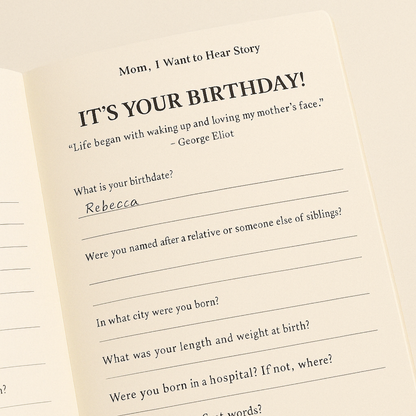 Mom, I Want to Hear Story
IT'S YOUR BIRTHDAY!
"Life began with waking up and loving my mother's face."
– George Eliot
What is your birthdate?
Rebecca
Were you named after a relative or someone else of siblings?
In what city were you born?
What was your length and weight at birth?
Were you born in a hospital? If not, where?
words?